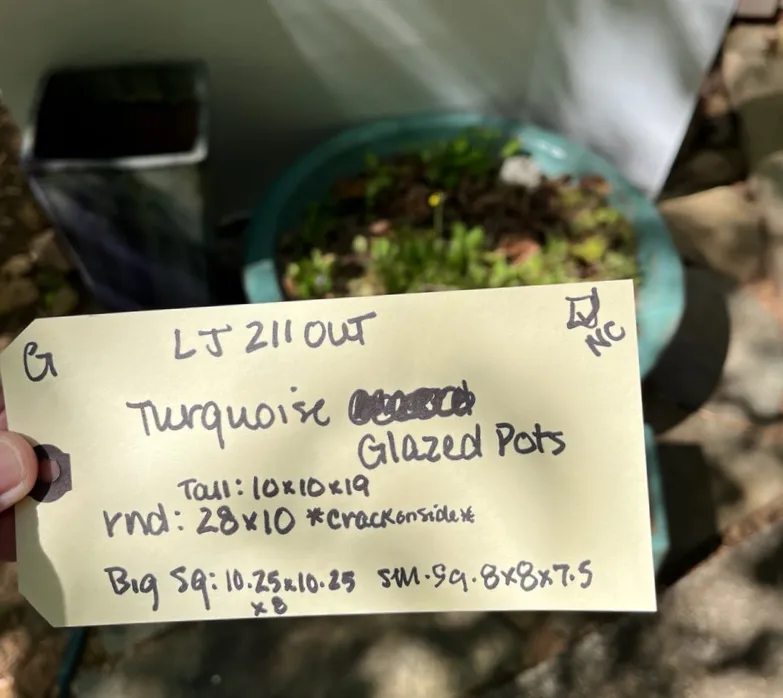 G LJ 211 OUT
NC
Turquoise
Glazed Pots
Tall: 10x10x19
rnd: 28x10 *crack on side*
Big Sq: 10.25x10.25 sm.sq. 8x8x7.5
x8